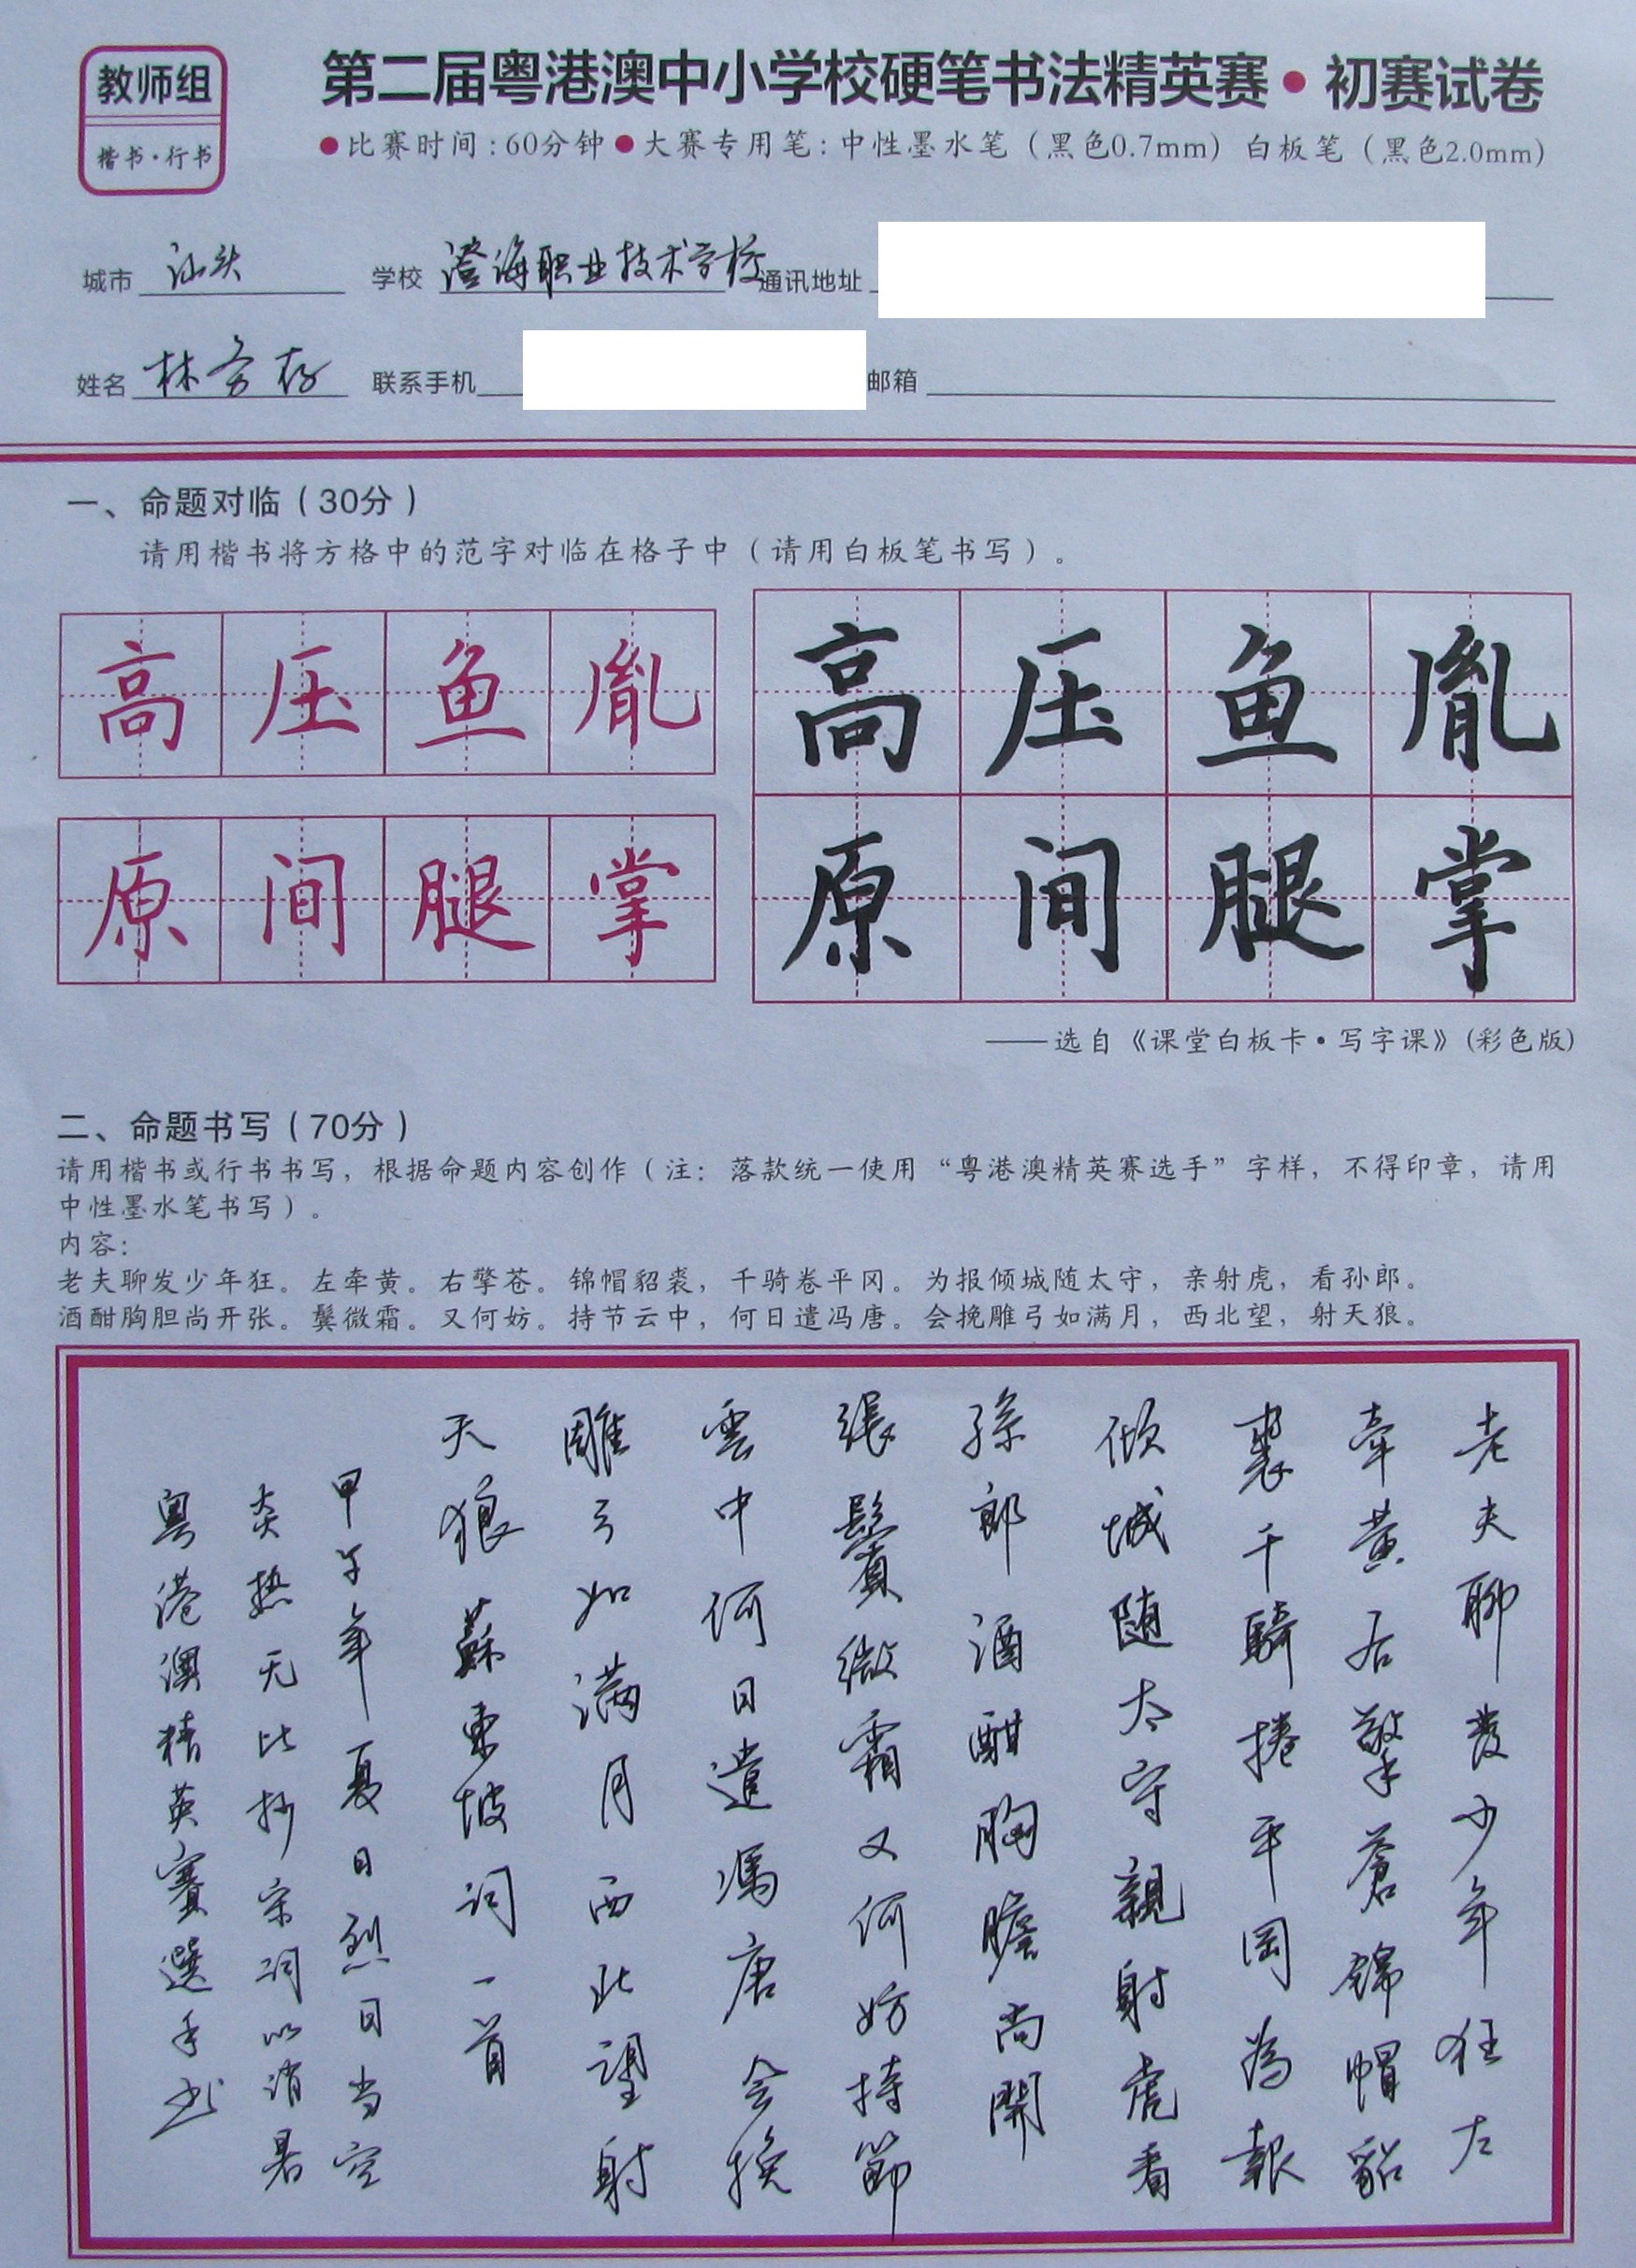 教师组
楷书·行书
第二届粤港澳中小学校硬笔书法精英赛·初赛试卷
●比赛时间:60分钟●大赛专用笔:中性墨水笔（黑色0.7mm）白板笔（黑色2.0mm）
城市 汕头 学校 澄海职业技术学校 通讯地址
姓名 林 存 联系手机 邮箱
一、命题对临（30分）
请用楷书将方格中的范字对临在格子中（请用白板笔书写）。
高压鱼胤
原间腿掌
高压鱼胤
原间腿掌
——选自《课堂白板卡·写字课》(彩色版)
二、命题书写（70分）
请用楷书或行书书写，根据命题内容创作（注：落款统一使用“粤港澳精英赛选手”字样，不得印章，请用
中性墨水笔书写）。
内容：
老夫聊发少年狂。左牵黄。右擎苍。锦帽貂裘，千骑卷平冈。为报倾城随太守，亲射虎，看孙郎。
酒酣胸胆尚开张。鬓微霜。又何妨。持节云中，何日遣冯唐。会挽雕弓如满月，西北望，射天狼。
老夫聊發少年狂左
牽黄右擎蒼錦帽貂
裘千騎捲平岡為報
傾城随太守親射虎看
孫郎酒酣胸膽尚開
張鬢微霜又何妨持節
雲中何日遣馮唐会挽
雕弓如满月西北望射
天狼蘇東坡词一首
甲午年夏日烈日当空
炎热无比抄宋词以消暑
粤港澳精英賽選手书